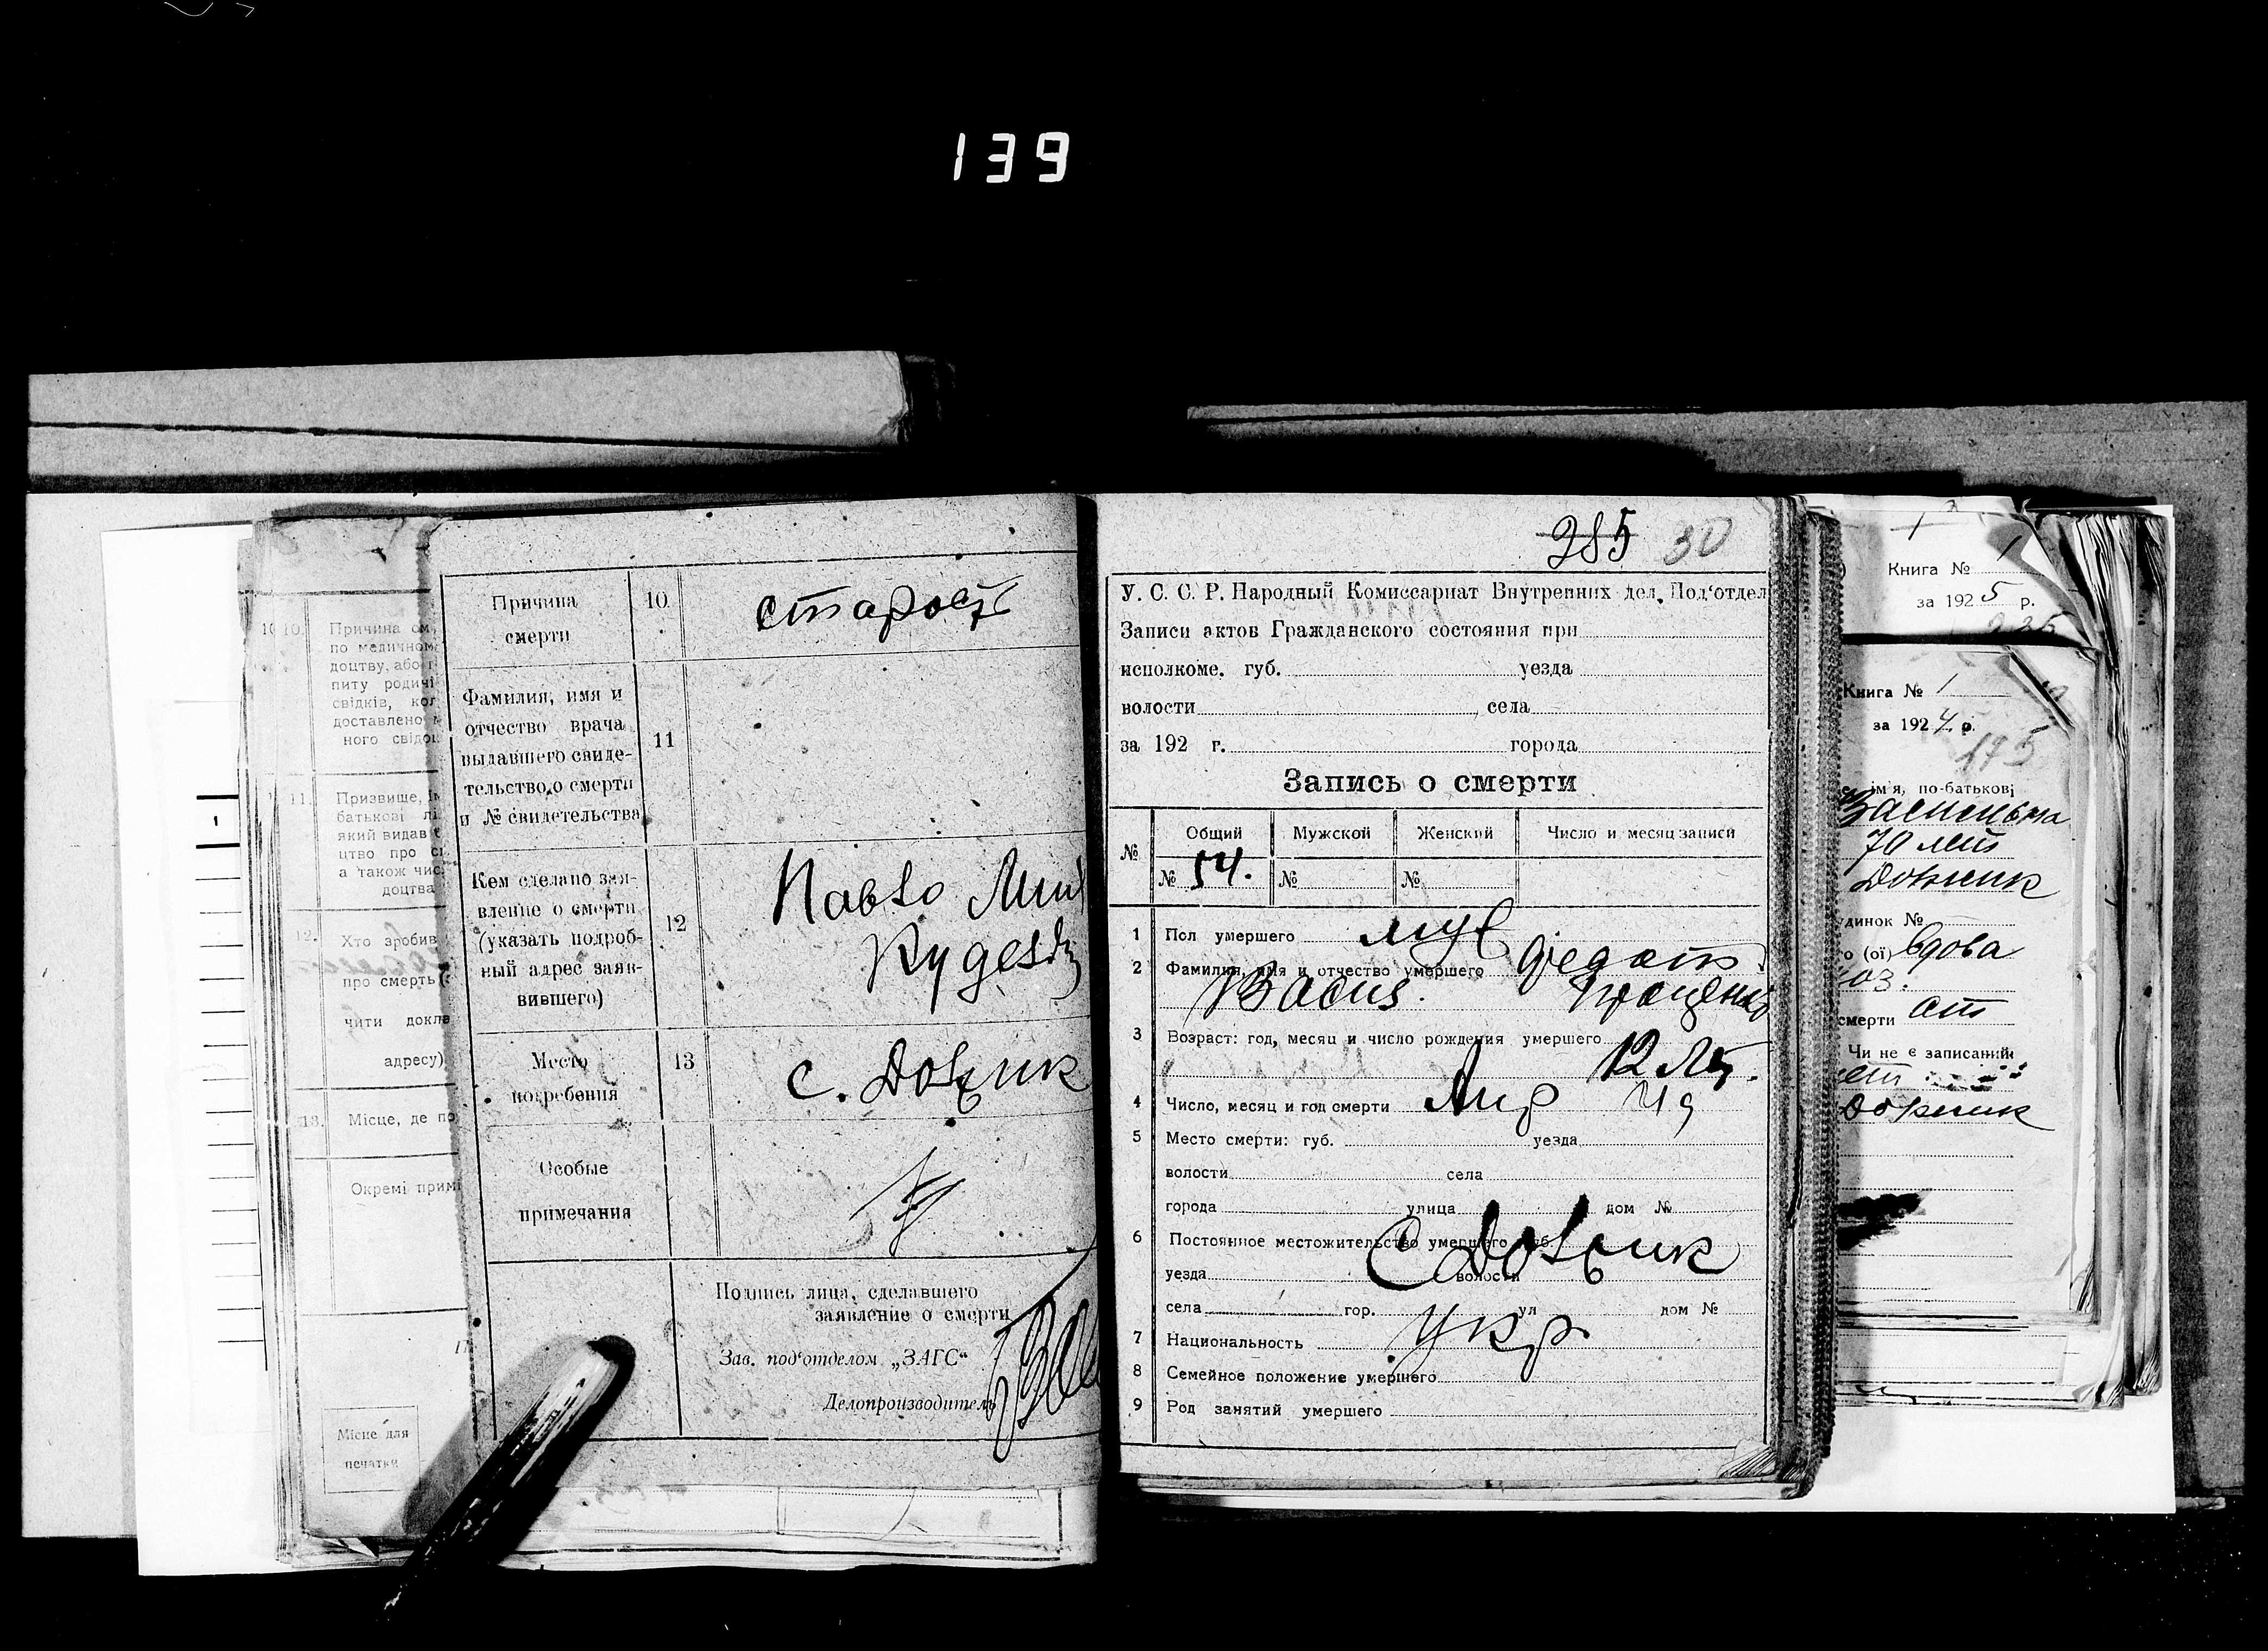 139
Причина
смерти
10
старость
Фамилия, имя и
отчество врача
выдавшего свиде-
тельство о смерти
и № свидетельства
11
Кем сделано зая-
вление о смерти
(указать подроб-
ный адрес заяв-
вившего)
12
Павло
Место
погребения
13
с. Довжик
Особые
примечания
Подпись лица, сделавшего
заявление о смерти
Зав. под‘отделом „ЗАГС“
Делопроизводитель
10.
Причина см
по медичном
доцтву, або
питу родичі
свідків, кол
доставлено
ного свідоц
11.
Призвище,
батькові лі
який видав
цтво про с
а також чис
доцтва
12.
Хто зробив
про смерть
чити докла
адресу)
13.
Місце, де по
Окремі примі
Місце для
печатки
285 30
У. С. С. Р. Народный Комиссариат Внутренних дел. Под‘отдел
Записи актов Гражданского состояния при
исполкоме. губ. уезда
волости села
за 192 г. города
Запись о смерти
№ Общий Мужской Женский Число и месяц записи
№ 54. № №
1 Пол умершего муж
2 Фамилия, имя и отчество умершего Федот
Васил.
3 Возраст: год, месяц и число рождения умершего
12 лет.
4 Число, месяц и год смерти
5 Место смерти: губ. уезда
волости села
города улица дом №
6 Постоянное местожительство умершего губ.
С Довжик
уезда волости
села гор. ул дом №
7 Национальность Укр
8 Семейное положение умершего
9 Род занятий умершего
Книга № 1
за 1925 р.
Книга № 1
за 1924 р.
195
ім‘я, по-батькові
70 лет
Довжик
удинок №
о (ої) вдова
смерти
Чи не є записаний
Довжик